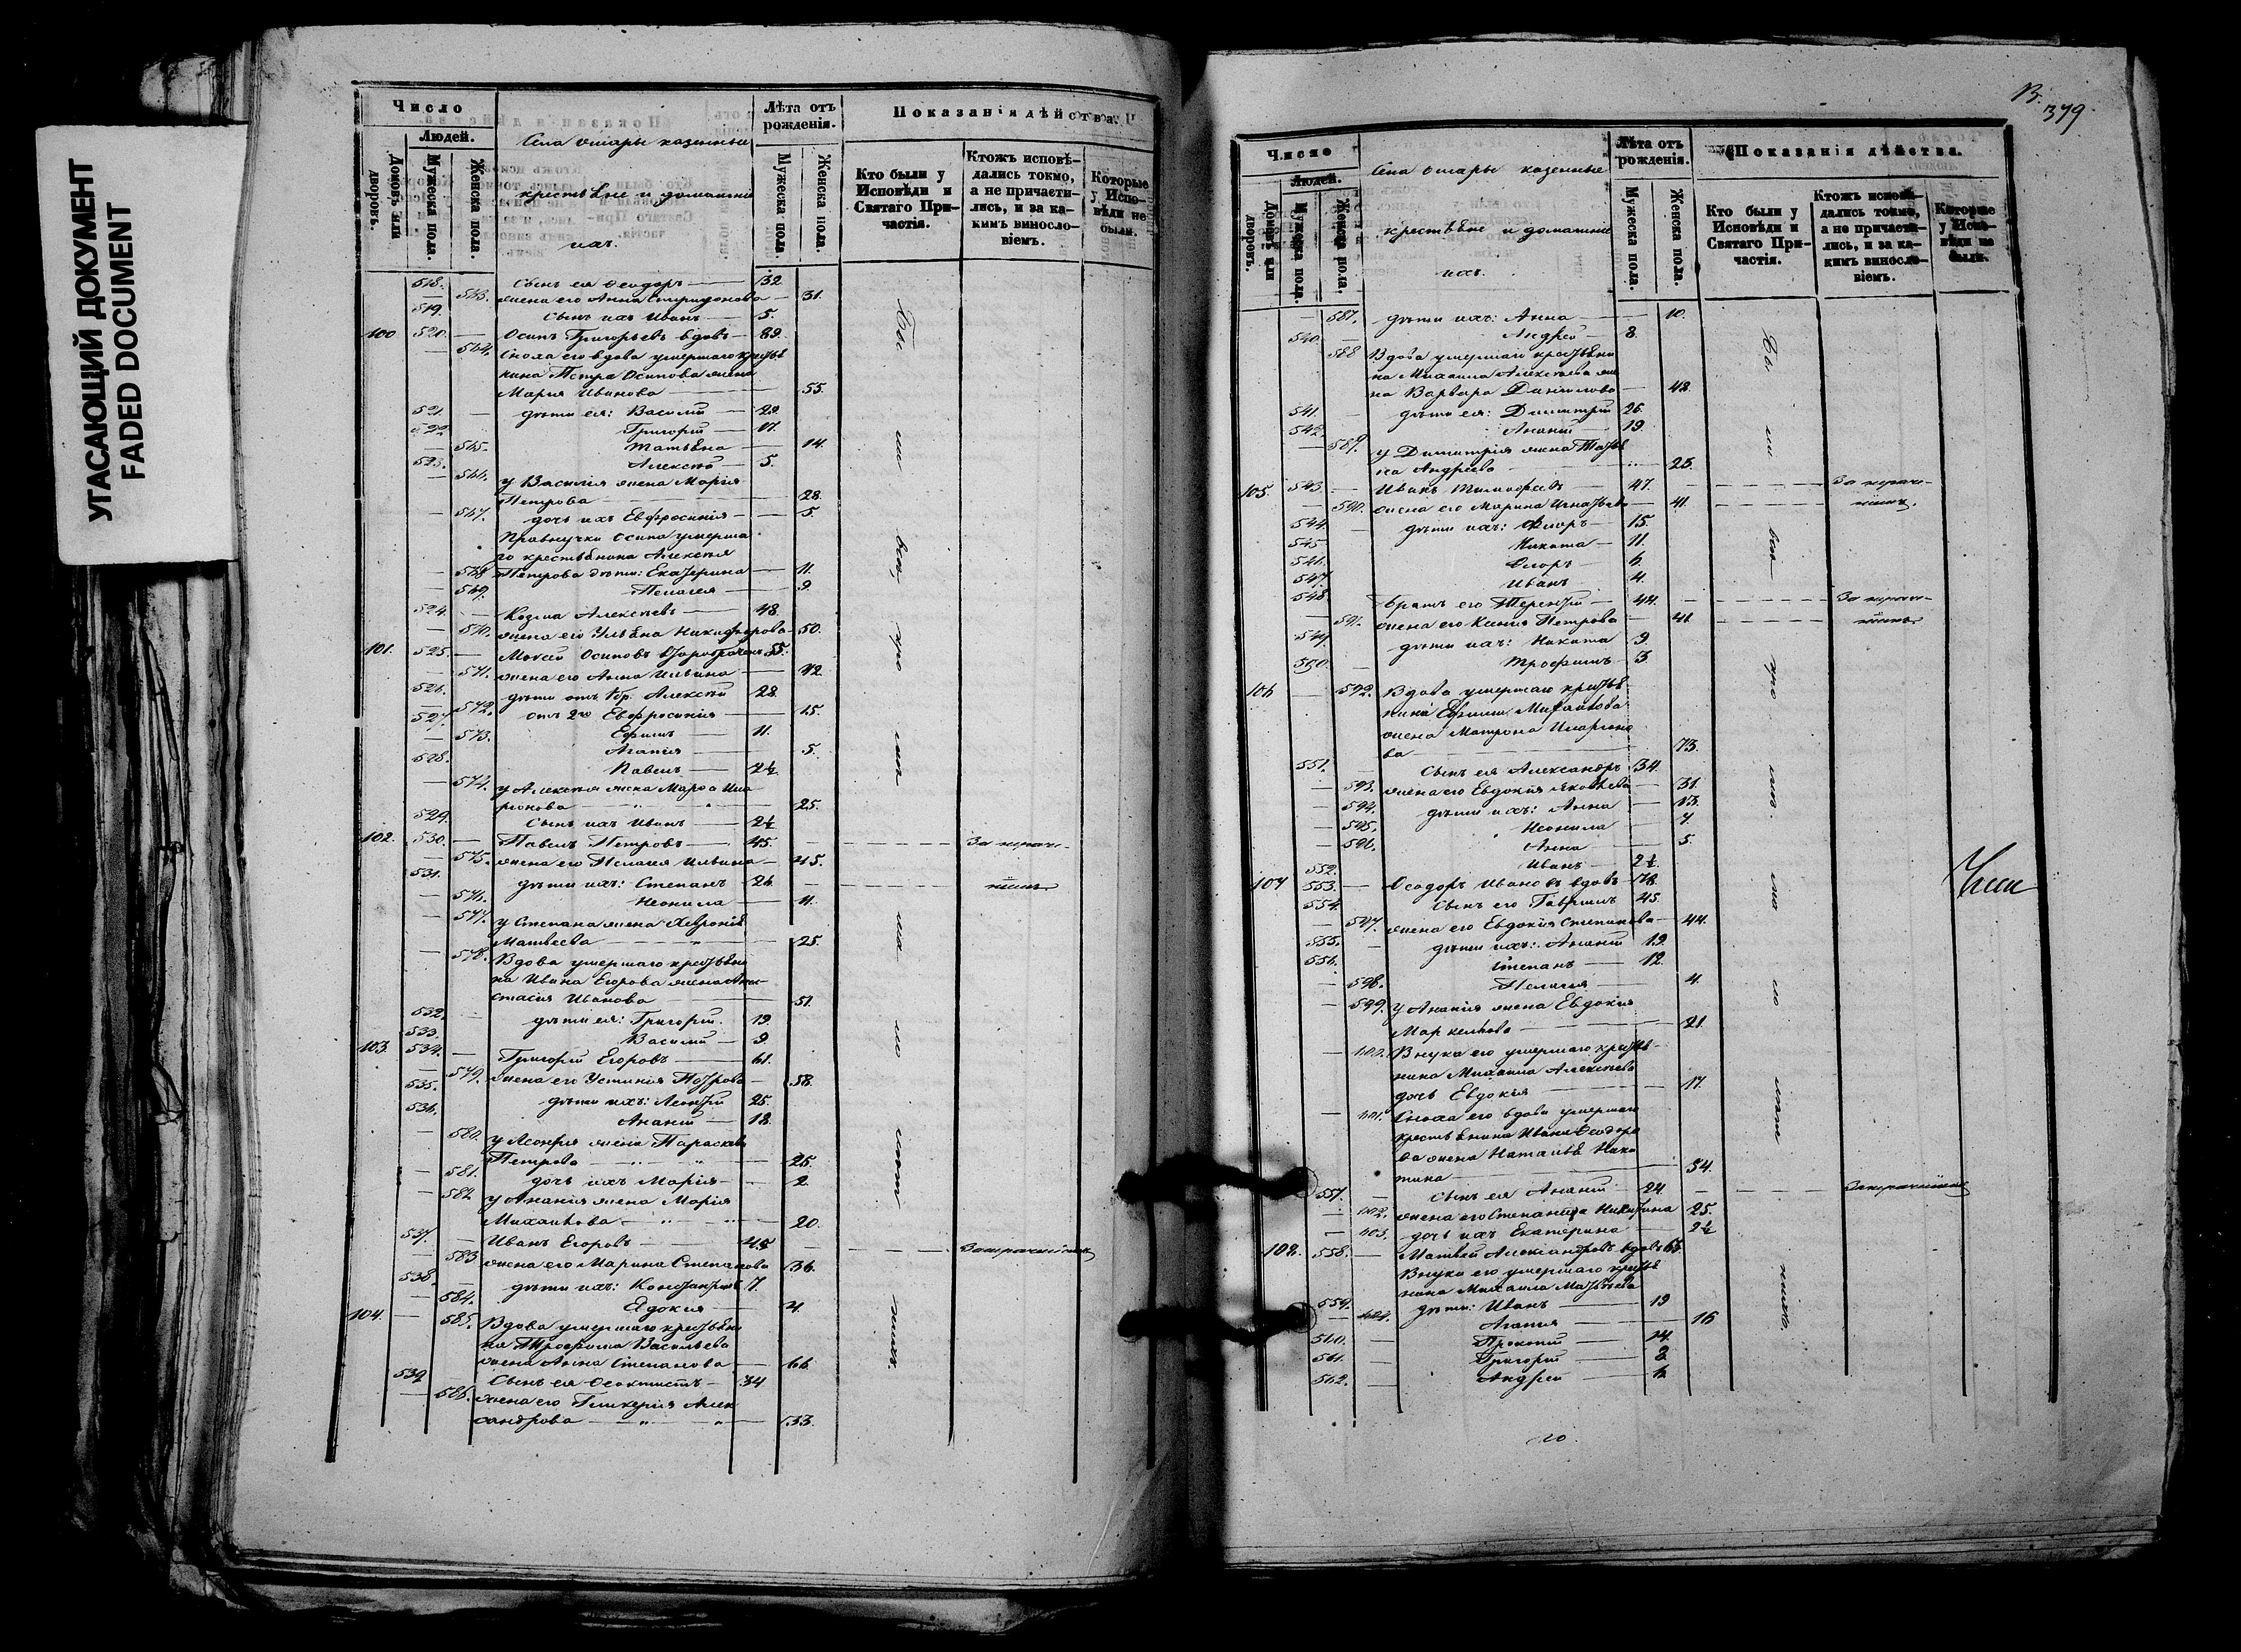 УГАСАЮЩИЙ ДОКУМЕНТ
FADED DOCUMENT
Число
Людей.
Домовъ или дворовъ.
Мужеска пола.
Женска пола.
Села Отары казенные
крестьяне и домашніе
ихъ.
Лѣта отъ рожденія.
Мужеска пола.
Женска пола.
Показанія дѣйства.
Кто были у Исповѣди и Святаго Причастія.
Ктожъ исповѣдались токмо, а не причастились, и за какимъ винословіемъ.
Которые у Исповѣди не были.
518. Сынъ ея Ѳеодоръ 32
563. жена его Анна Спиридонова 31.
519. Сынъ ихъ Иванъ 5.
100 520. Осипъ Григорьевъ вдовъ 89.
564. Сноха его вдова умершаго крестья
нина Петра Осипова жена
Марія Иванова 55.
521. дѣти ея: Василій 29.
522. Григорій 17.
565. Татьяна 14.
523. Алексѣй 5.
566. у Василія жена Марія
Петрова 28.
567. дочь ихъ Евфросинія 5.
Правнучки Осипа умерша
го крестьянина Алексѣя
568 Петрова дѣти: Екатерина 11.
569. Пелагея 9.
524. Козма Алексѣевъ 48.
570. жена его Ульяна Никифорова 50.
101. 525. Моисей Осиповъ второбраченъ 55.
571. жена его Анна Ильина 42.
526. дѣти отъ 1 бр. Алексѣй 28.
572. отъ 2го Евфросинія 15.
527. Ефимъ 11.
573. Агапія 5.
528. Павелъ 2½
574. у Алексѣя жена Марѳа Ила
ріонова 25.
529. Сынъ ихъ Иванъ 2½
102. 530. Павелъ Петровъ 45. За нерачі-
575. жена его Пелагея Ильина 45.
531. дѣти ихъ: Степанъ 26. ніемъ
576. Неонила 11.
577. у Степана жена Хевронія
Матвеева 25.
578. Вдова умершаго крестьяни
на Ивана Егорова жена Ана
стасія Иванова 51.
532. дѣти ея: Григорій 19.
533. Василій 9.
103. 534. Григорій Егоровъ 61.
579. жена его Устинія Петрова 58.
535. дѣти ихъ: Леонтій 25.
536. Ананій 18.
580. у Леонтія жена Параскева
Петрова 25.
581. дочь ихъ Марія 2.
582 у Ананія жена Марія
Михайлова 20.
537. Иванъ Егоровъ 45. За нерачіемъ
583 жена его Марина Степанова 36.
538. дѣти ихъ: Кондратій 7.
584. Евдокія 4.
104. 585. Вдова умершаго крестьяни
на Трофима Васильева
жена Анна Степанова 66.
539. Сынъ ея Ѳеоктистъ 34
586. жена его Гликерія Алек
сандрова 33.
Бы ли всѣ, кро мѣ
379.
Число
Людей.
Домовъ или дворовъ.
Мужеска пола.
Женска пола.
Села Отары казенные
крестьяне и домашніе
ихъ.
Лѣта отъ рожденія.
Мужеска пола.
Женска пола.
Показанія дѣйства.
Кто были у Исповѣди и Святаго Причастія.
Ктожъ исповѣдались токмо, а не причастились, и за какимъ винословіемъ.
Которые у Исповѣди не были.
587. дѣти ихъ: Анна 10.
540. Андрей 8.
588 Вдова умершаго крестьяни
на Михаила Алексѣева же
на Варвара Данилова 48.
541. дѣти ея: Димитрій 26.
542. Ананій 19.
589. у Димитрія жена Татья
на Андреева 25.
105. 543. Иванъ Тимофеевъ 47. За нерачі-
590. жена его Марина Игнатьева 41. ніемъ.
544. дѣти ихъ: Флоръ 15.
545 Никита 11.
546. Егоръ 6.
547. Иванъ 4.
548. братъ его Терентій 44. За нерачі-
591. жена его Ксенія Петрова 41. ніемъ
549 дѣти ихъ: Никита 9
550. Трофимъ 3
106 592. Вдова умершаго крестья
нина Ефима Михайлова
жена Матрона Иларіоно
ва 73.
551. Сынъ ея Александръ 34.
593. жена его Евдокія Яковлева 31.
594. дѣти ихъ: Анна 13.
595. Неонила 7.
596. Анна 5.
552. Иванъ 2½.
107 553. Ѳеодоръ Ивановъ вдовъ 78.
554. Сынъ его Гавріилъ 45.
597. жена его Евдокія Степанова 44.
555. дѣти ихъ: Ананій 19.
556. Степанъ 12.
598. Пелагія 4.
599. у Ананія жена Евдокія
Маркелова 21.
600. Внука его умершаго крестья
нина Михаила Алексѣева
дочь Евдокія 17.
601. Сноха его вдова умершаго
крестьянина Ивана Ѳеодоро
ва жена Наталія Ники
тина 54.
557. Сынъ ея Ананій 24. За нерачіемъ
602. жена его Степанида Никитина 25.
603. дочь ихъ Екатерина 2½
108. 558. Матвѣй Александровъ вдовъ 65.
Внуки его умершаго крестья
нина Михаила Матвѣева
559. дѣти: Иванъ 19
604. Агапія 16
560. Прокопій 14.
561. Григорій 8.
562. Андрей
Бы ли всѣ кро мѣ